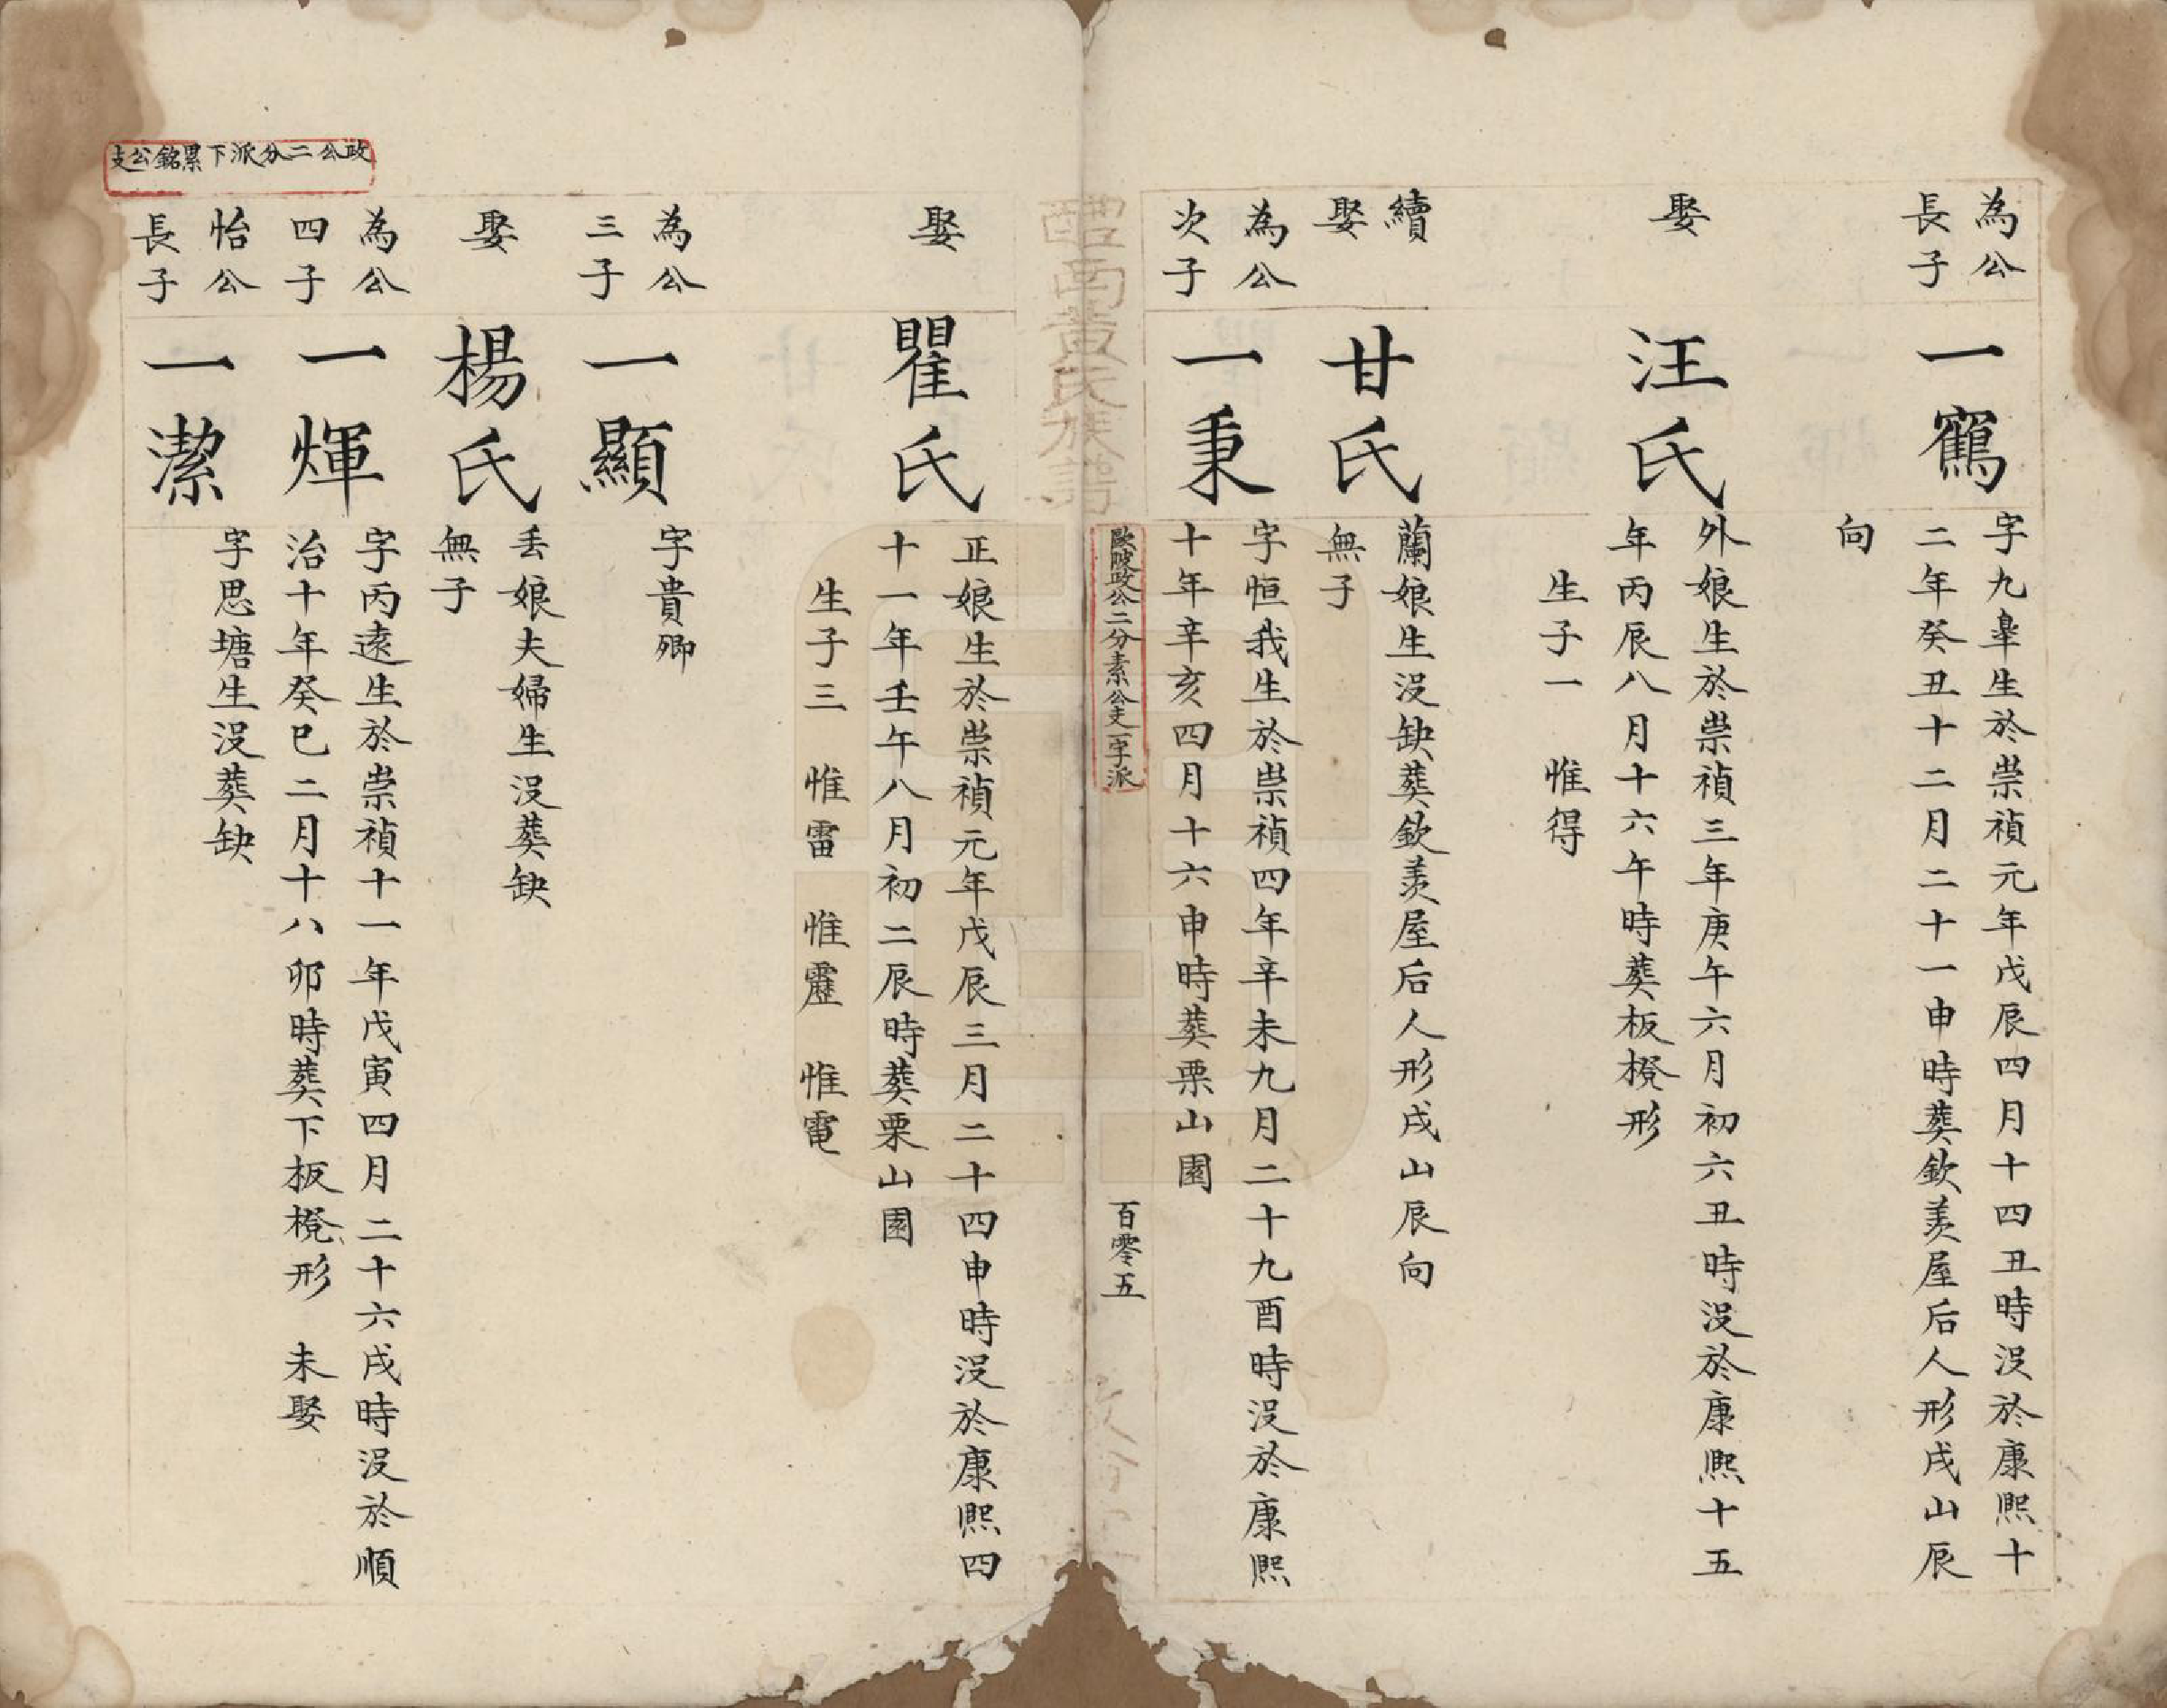 為公
長子
一鶴
字九臯生於崇禎元年戊辰四月十四丑時没於康熙十
二年癸丑十二月二十一申時葬欽羙屋后人形戌山辰
向
娶
汪氏
外娘生於崇禎三年庚午六月初六丑時没於康熙十五
年丙辰八月十六午時葬板櫈形
生子一　惟得
續
娶
甘氏
蘭娘生没缺葬欽羙屋后人形戌山辰向
無子
為公
次子
一秉
字恒我生於崇禎四年辛未九月二十九酉時没於康熙
十年辛亥四月十六申時葬栗山園
醴西黄氏族譜
歐陂政公二分素公支一字派
百零五
娶
瞿氏
正娘生於崇禎元年戊辰三月二十四申時没於康熙四
十一年壬午八月初二辰時葬栗山園
生子三　惟雷　惟靂　惟電
為公
三子
一顯
字貴卿
娶
楊氏
丢娘夫婦生没葬缺
無子
為公
四子
一煇
字丙遠生於崇禎十一年戊寅四月二十六戌時没於順
治十年癸巳二月十八卯時葬下板櫈形　未娶
怡公
長子
一潔
字思塘生没葬缺
政公二分派下累銘公支